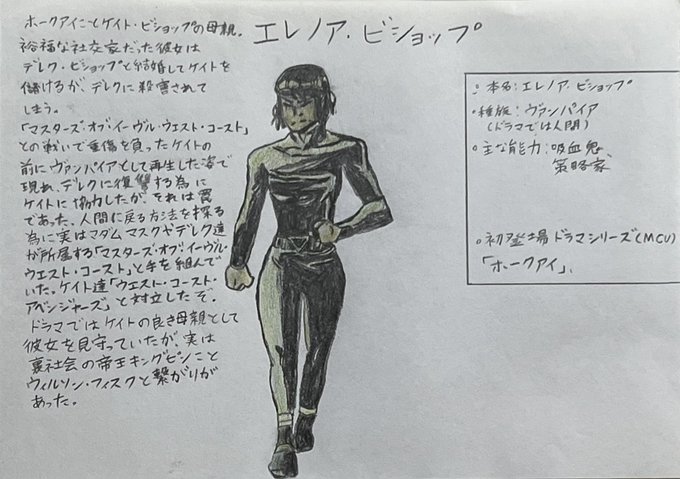 エレノア・ビショップ
ホークアイことケイト・ビショップの母親。
裕福な社交家だった彼女は
デレク・ビショップと結婚してケイトを
儲けるが、デレクに殺害されて
しまう。
「マスターズ・オブ・イーヴル・ウエスト・コースト」
との戦いで重傷を負ったケイトの
前にヴァンパイアとして再生した姿で
現れ、デレクに復讐する為に
ケイトに協力したが、それは罠
であった、人間に戻る方法を探る
為に実はマダムマスクやデレク達
が所属する「マスターズ・オブ・イーヴル・
ウエスト・コースト」と手を組んで
いた。ケイト達「ウエスト・コースト・
アベンジャーズ」と対立したぞ。
ドラマではケイトの良き母親として
彼女を見守っていたが、実は
裏社会の帝王キングピンこと
ウィルソン・フィスクと繋がりが
あった。
・本名:エレノア・ビショップ
・種族:ヴァンパイア
(ドラマでは人間)
・主な能力:吸血鬼
策略家
・初登場ドラマシリーズ(MCU)
「ホークアイ」、